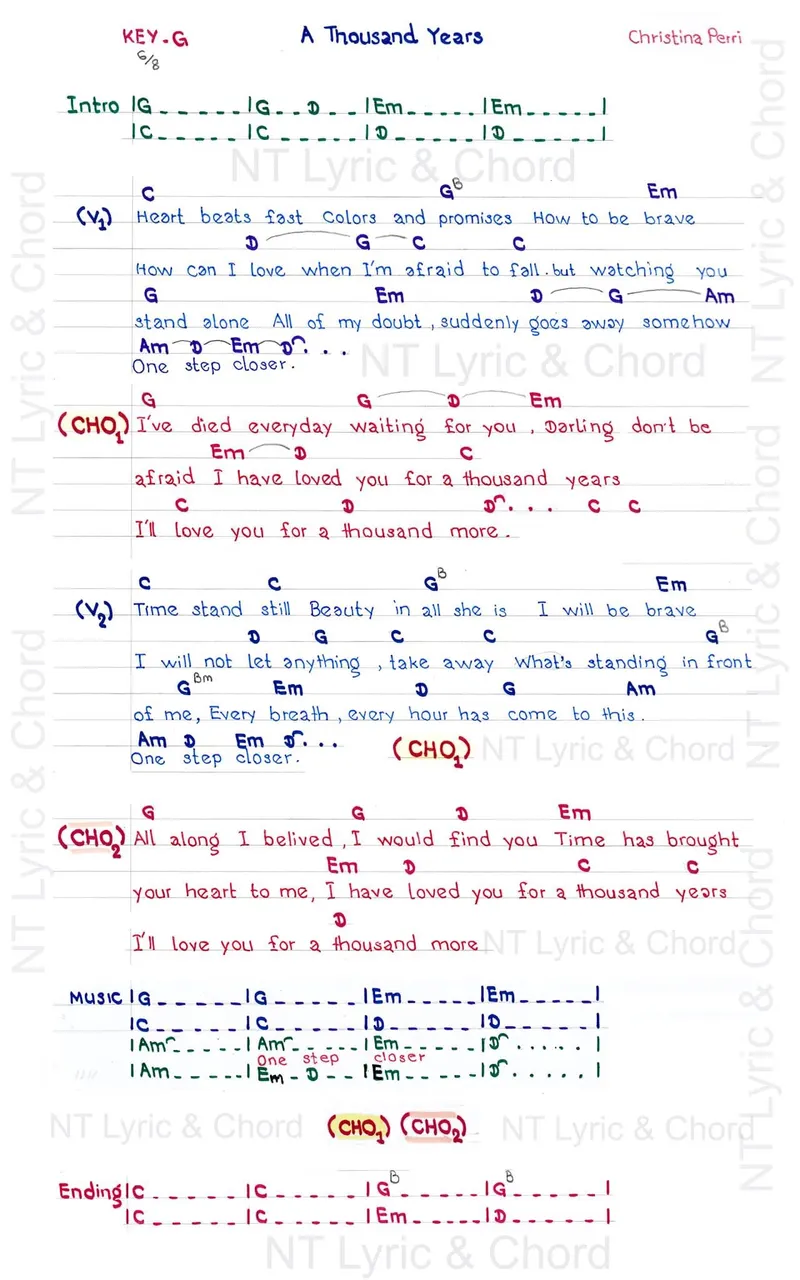 KEY-G A Thousand Years Christina Perri
6/8
Intro |G _ _ _ _ _ |G _ _ D _ _ |Em _ _ _ _ _ |Em _ _ _ _ _ |
|C _ _ _ _ _ |C _ _ _ _ _ |D _ _ _ _ _ |D _ _ _ _ _ |
NT Lyric & Chord
C G B Em
(V1) Heart beats fast Colors and promises How to be brave
D G C C
How can I love when I'm afraid to fall. but watching you
G Em D G Am
stand alone All of my doubt, suddenly goes away somehow
Am D Em D . . .
One step closer.
NT Lyric & Chord
G G D Em
(CHO1) I've died everyday waiting for you, Darling don't be
Em D C
afraid I have loved you for a thousand years
C D D . . . C C
I'll love you for a thousand more.
C C G B Em
(V2) Time stand still Beauty in all she is I will be brave
D G C C G B
I will not let anything, take away What's standing in front
G Bm Em D G Am
of me, Every breath, every hour has come to this.
Am D Em D . . . (CHO1)
One step closer.
NT Lyric & Chord
G G D Em
(CHO2) All along I belived, I would find you Time has brought
Em D C C
your heart to me, I have loved you for a thousand years
D
I'll love you for a thousand more
NT Lyric & Chord
Music |G _ _ _ _ _ |G _ _ _ _ _ |Em _ _ _ _ _ |Em _ _ _ _ _ |
|C _ _ _ _ _ |C _ _ _ _ _ |D _ _ _ _ _ |D _ _ _ _ _ |
|Am _ _ _ _ _ |Am _ _ _ _ _ |Em _ _ _ _ _ |D . . . . . |
One step closer
|Am _ _ _ _ _ |Em _ D _ _ |Em _ _ _ _ _ |D . . . . . |
NT Lyric & Chord (CHO1) (CHO2) NT Lyric & Chord
B B
Ending |C _ _ _ _ _ |C _ _ _ _ _ |G _ _ _ _ _ |G _ _ _ _ _ |
|C _ _ _ _ _ |C _ _ _ _ _ |Em _ _ _ _ _ |D _ _ _ _ _ |
NT Lyric & Chord
NT Lyric & Chord
NT Lyric & Chord
NT Lyric & Chord
NT Lyric & Chord
NT Lyric & Chord
NT Lyric & Chord
NT Lyric & Chord